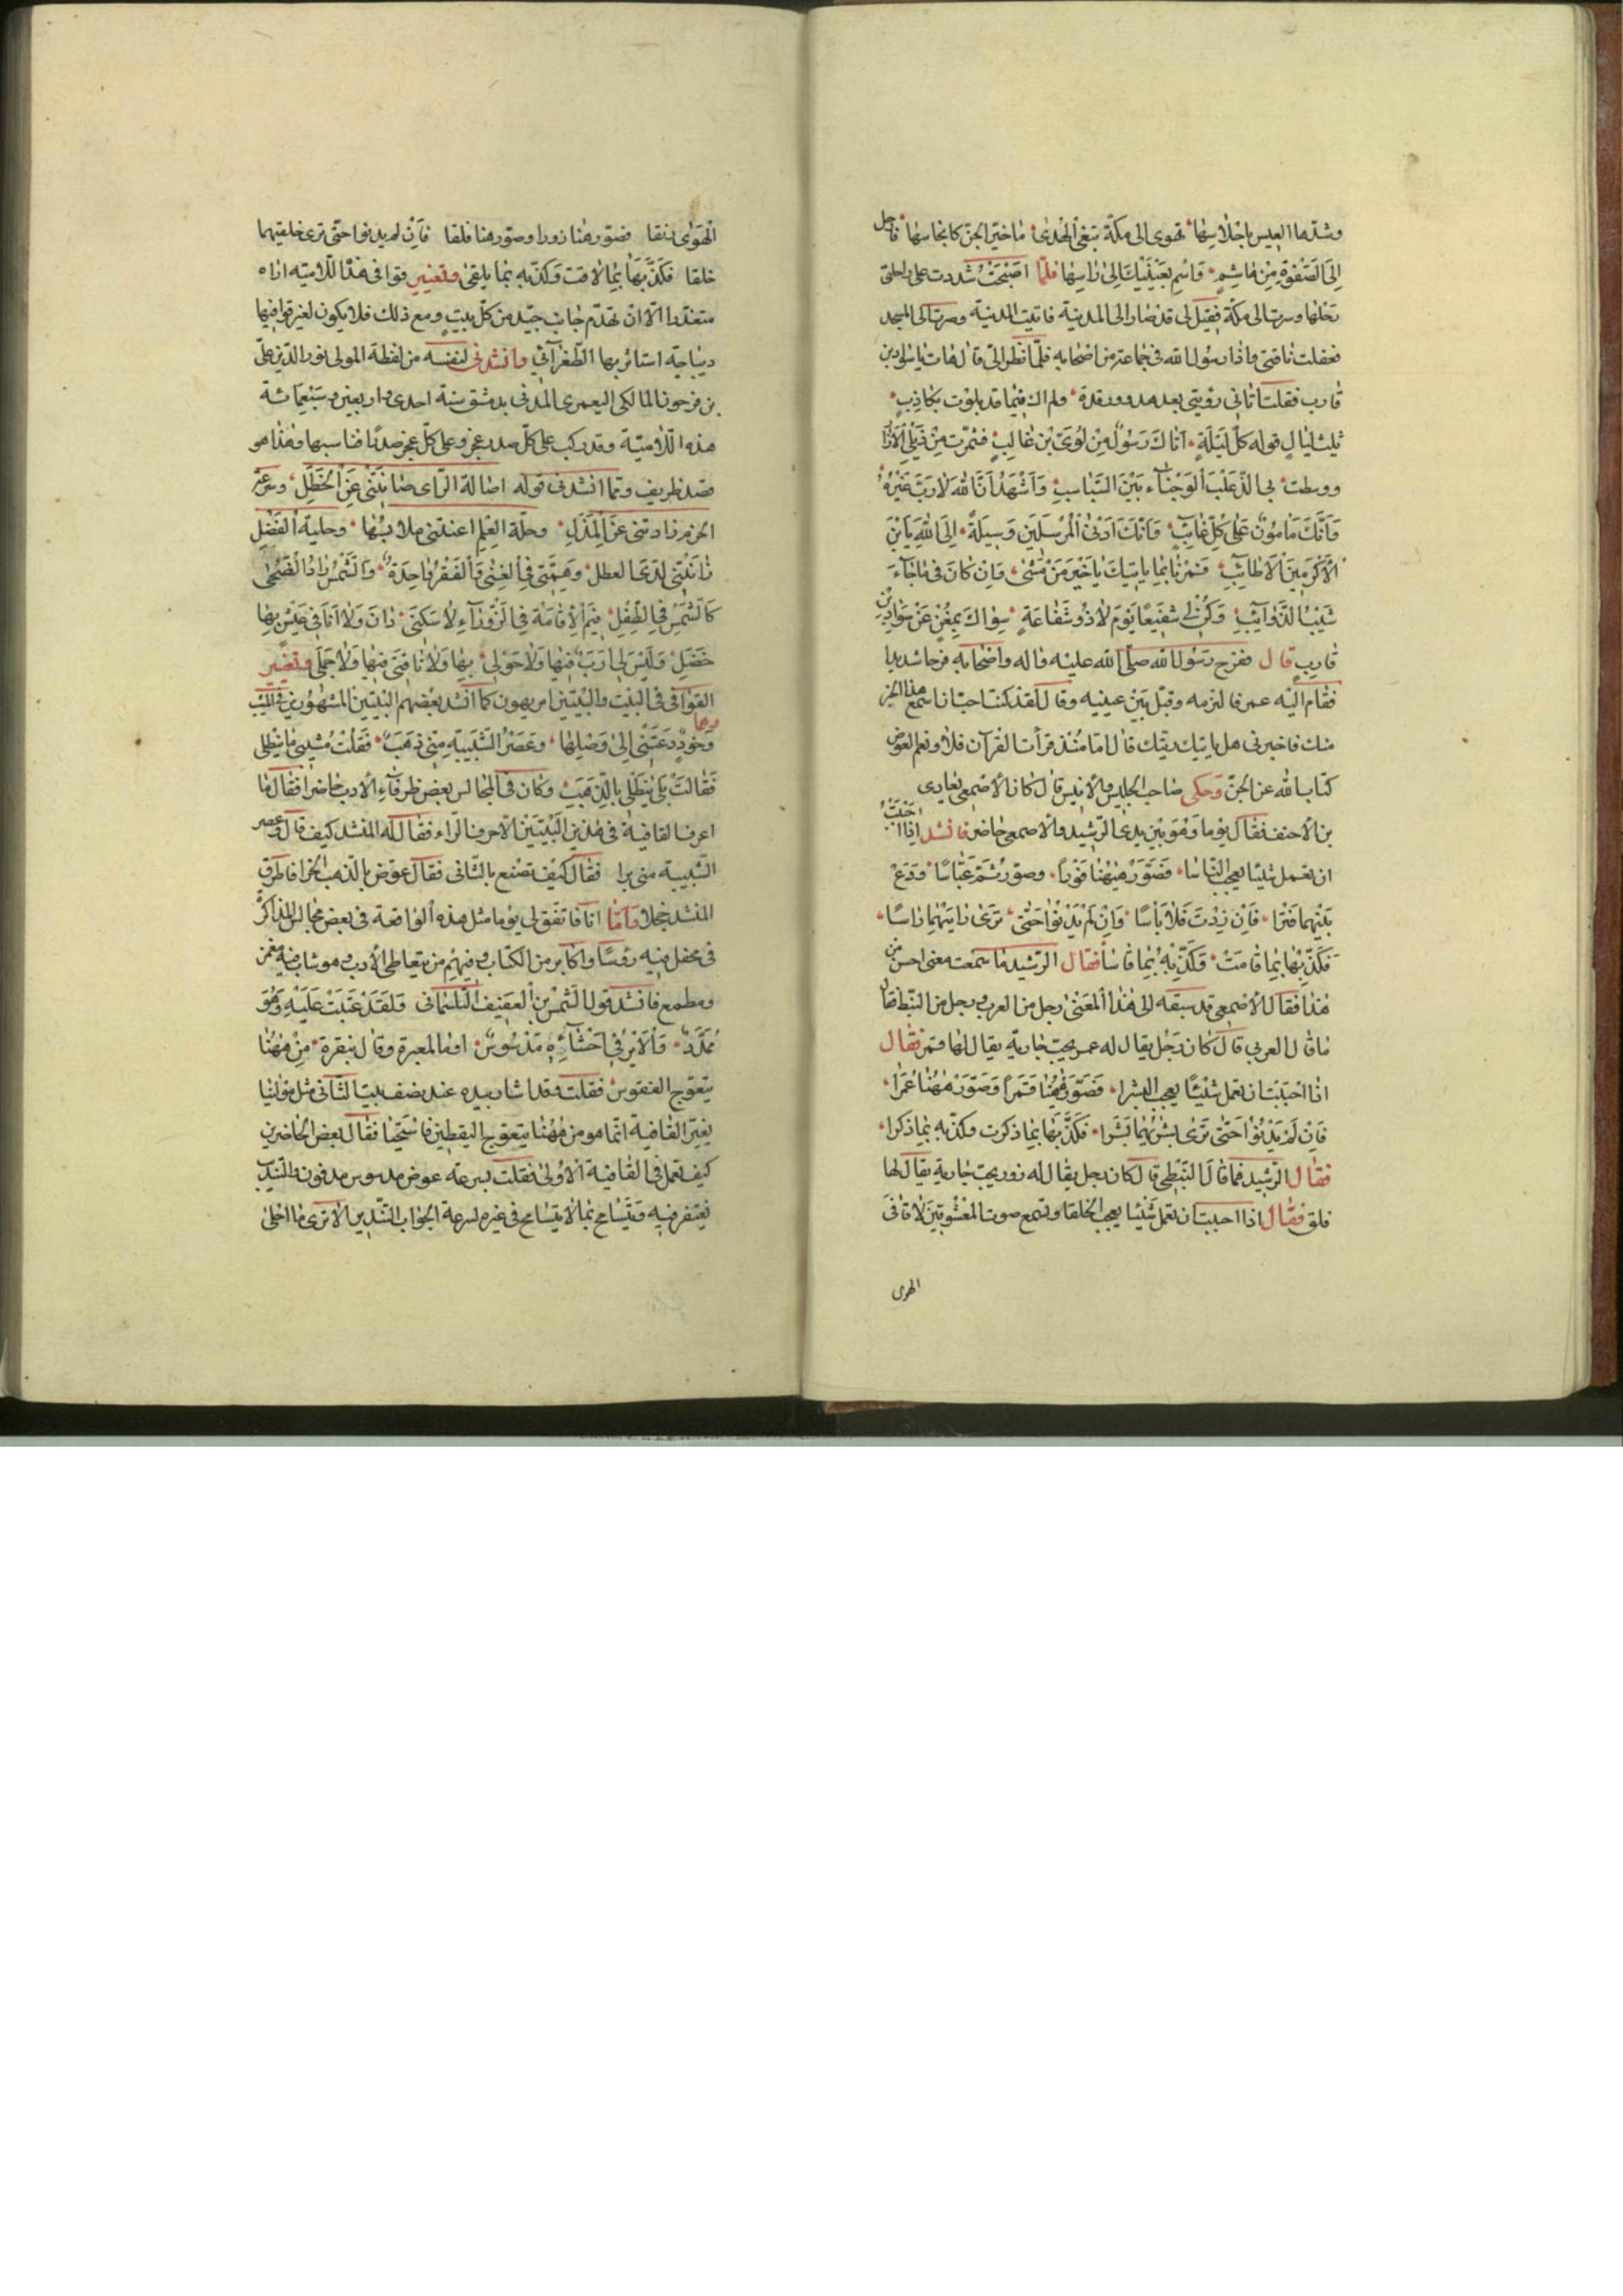 وشدّها العيس باحلاسها تهوى الى مكة تبغى الهدى ما خير الجن كانجاسها فارحل
الى الصفوة من هاشم واسم بعينيك الى راسها فلما اصبحت شددت على راحلتى
رحلها وسرت الى مكة فقيل لى قد صار الى المدينة فاتيت المدينة وصرت الى المسجد
فعقلت ناقتى واذا رسول الله فى جماعة من اصحابه فلما نظر الىّ قال هات يا سواد بن
قارب فقلت اتانى رؤيتى بعد هدو ورقدة ولم اك فيما قد بلوت بكاذب
ثلث ليال قوله كل ليلة اتاك رسول من لوىّ بن غالب فشمرت من ذيلى الازار
ووسطت بى الذعلب الوجناء بين السباسب واشهد ان الله لا رب غيره
وانك مامون على كل غائب وانك ادنى المرسلين وسيلة الى الله يا بن
الاكرمين الاطائب فمرنا بما ياتيك يا خير من مشى وان كان فى ما جاء
شيب الذوائب وكن لى شفيعا يوم لا ذو شفاعة سواك بمغن عن سواد بن
قارب قال ففرح رسول الله صلى الله عليه واله واصحابه فرحا شديدا
فقام اليه عمر فالتزمه وقبل بين عينيه وقال لقد كنت احب ان اسمع هذا الخبر
منك فاخبرنى هل ياتيك ريّك قال اما منذ قرأت القرآن فلا ونعم العوض
كتاب الله عن الجن وحكى صاحب الجليس والانيس قال كان الاصمعى يعادى
بن الاحنف فقال يوما وهو بين يدى الرشيد والاصمعى حاضر فانشد اذا احببت
ان تعمل شيئا يعجب الناسا فصور ههنا فوزا وصور ثم عباسا ودع
بينهما فترا فان زدت فلا باسا وان لم يدنوا حتى ترى رايتهما راسا
فكذبها بما قامت وكذبه بما قاسا فقال الرشيد ما سمعت معنى احسن من
هذا فقال الاصمعى قد سبقه الى هذا المعنى رجل من العرب ورجل من النبط فقال
ما قال العربى قال كان رجل يقال له عمر يحب جارية يقال لها قمر فقال
اذا احببت ان تعمل شيئا يعجب البشرا فصور ههنا قمرا وصور ههنا عمرا
فان لم يدنوا حتى ترى بشريهما بشرا فكذبها بما ذكرت وكذبه بما ذكرا
فقال الرشيد فما قال النبطى قال كان رجل يقال له زور يحب جارية يقال لها
فلق فقال اذا احببت ان تعمل شيئا يعجب الخلقا وتسمع صوت المعشوقين لاقا فى
الهوى
الهوى نقا فصور هنا زورا وصور هنا فلقا فان لم يدنوا حتى ترى خلقيهما
خلقا فكذبها بما لاقت وكذبه بما يلقى وتغيير قوافى هذه اللامية اراه
متعذرا الا ان تهدم جانب جيد من كل بيت ومع ذلك فلا يكون لغير قوافيها
ديباجة استاثر بها الطغرآئى وانشدنى لنفسه من لفظه المولى نور الدين على
بن فرحون المالكى اليعمرى المدنى بدمشق سنة احدى واربعين وسبعمائة
هذه اللامية وقد ركب على كل صدر عجز وعلى كل عجز صدرا فناسبها وهذا هو
قصد ظريف ومما انشدنى قوله اصالة الراى صانتنى عن الخطل وسرعة
الحزم زادتنى عن المذل وحلة العلم اغنتنى ملابسها وحلية الفضل
زانتنى لدى العطل وهمتى فى الغنى والفقر واحدة والشمس راد الضحى
كالشمس فى الطفل فيم الاقامة فى الزوراء لا سكنى دان ولا انا فى عيش بها
خضل وليس لى ارب فيها ولا حولى بها ولا ناقتى فيها ولا جملى وتغيير
القوافى فى البيت والبيتين امر يهون كما انشد بعضهم البيتين المشهورين فى الشيب وهما
وخود دعتنى الى وصلها وعصر الشبيبة منى ذهب فقلت مشيبى ما ينطلى
فقالت بلى ينطلى بالذهب وكان فى المجالس بعض ظرفاء الادب حاضرا فقال ما
اعرف القافية فى هذين البيتين الا حرف الراء فقال له المنشد كيف قال وعصر
الشبيبة منى برا فقال كيف تصنع بالثانى فقال عوض بالذهب الخرا فاطرق
المنشد خجلا واما انا فاتفق لى يوما مثل هذه الواقعة فى بعض مجالس المذاكرة
فى محفل فيه رؤسا واكابر من الكتاب وفيهم من يتعاطى الادب وهو شاب فيه مغمز
ومطمع فانشد قول الشمس بن العفيف التلمسانى ولقد عتبت عليه وهو
ممدد والاير فى احشائه مدسوس اوما لمعبرة وقال بنقرة من ههنا
يتعوج الفقوس فقلت وقد اشار بيده عند نصف البيت الثانى مثل مولانيا
يغير القافية انما هو من ههنا يتعوج اليقطين فاستحيا فقال بعض الحاضرين
كيف تعمل فى القافية الاولى فقلت بسرعة عوض مدسوس مدفون والتنديب
يغتفر فيه ويتسامح بما لا يتسامح فى غيره لسرعة الجواب التنديب الا ترى ما احلى